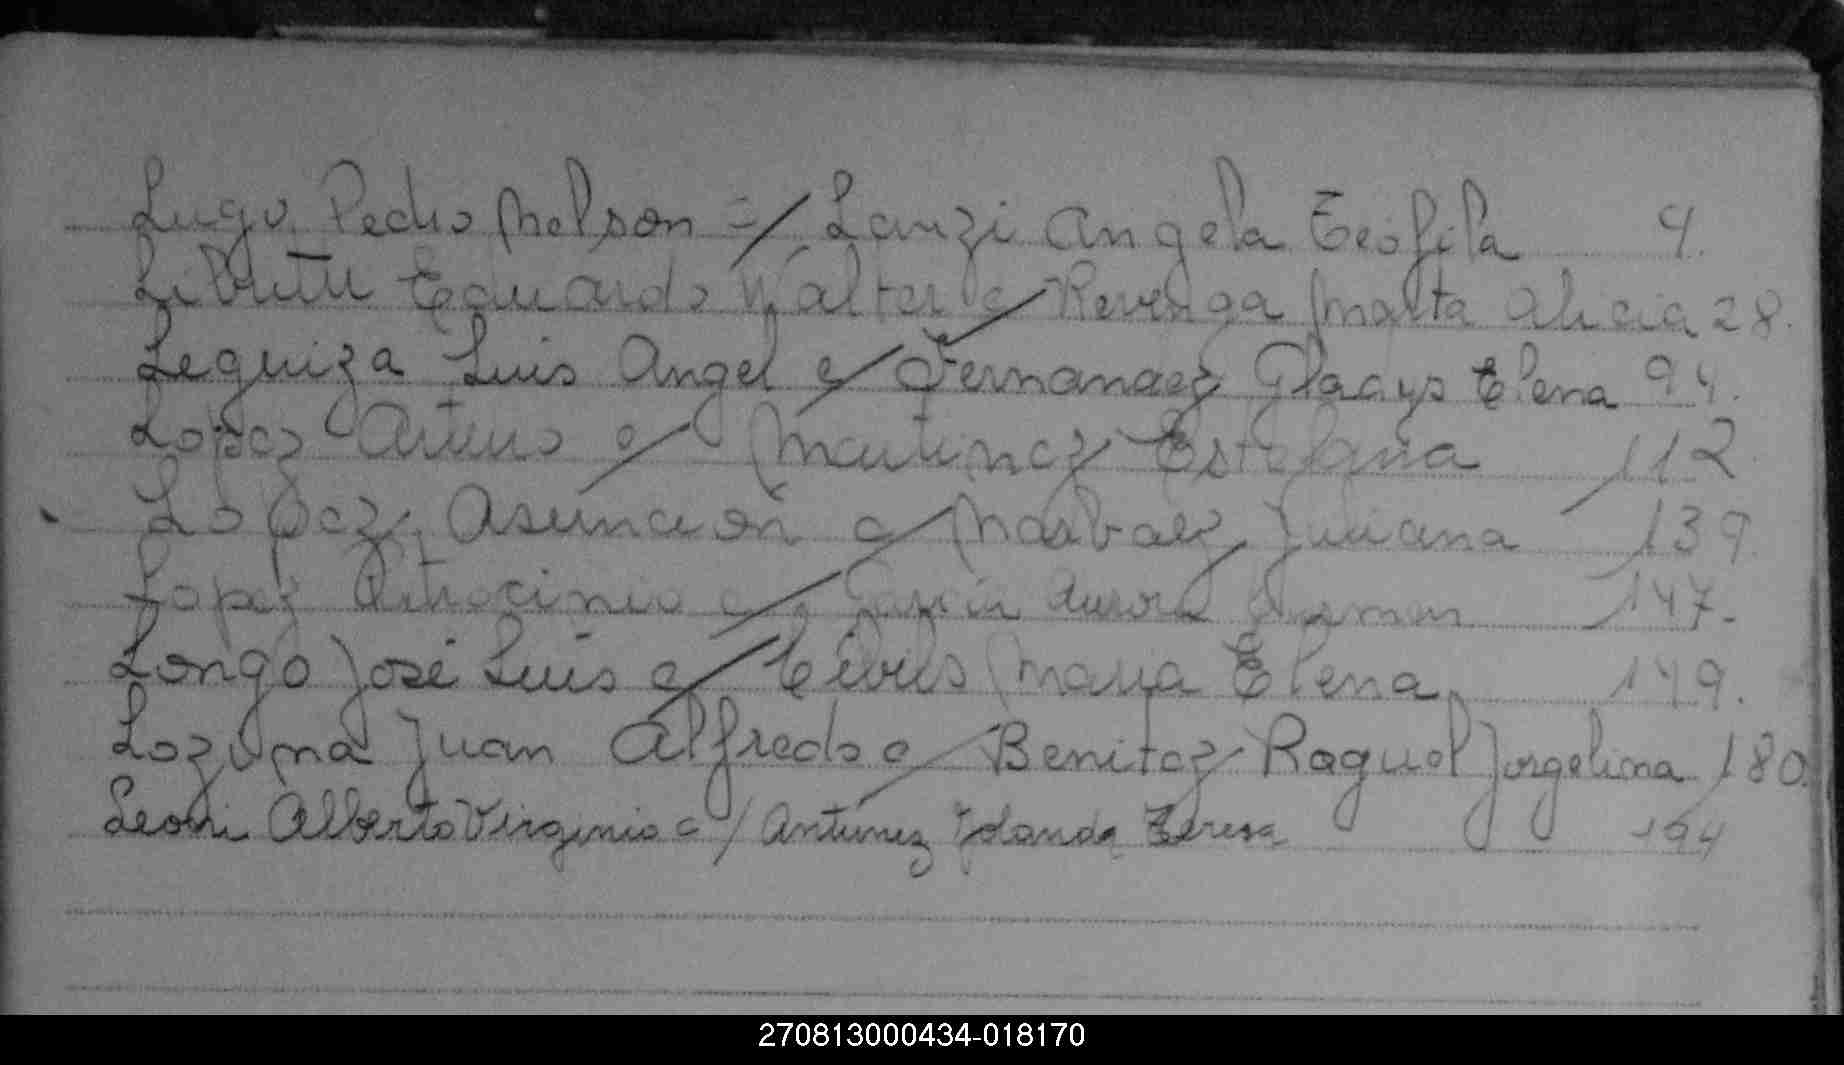 Lugo Pedro Nelson c/ Lanzi Angela Teofila 4.
Eduardo Walter c/ Revenga Marta Alicia 28.
Leguiza Luis Angel c/ Fernandez Gladys Elena 94.
Lopez Arturo c/ Martinez Estefania 112
Lopez Asuncion c/ Juliana 139
Lopez Patrocinio c/ Garcia Aurora 147.
Longo José Luis c/ Maria Elena 149.
Juan Alfredo c/ Benitez Raquel Jorgelina 180.
Leoni Alberto Virginio c/ Antunez Yolanda Teresa 194
270813000434-018170